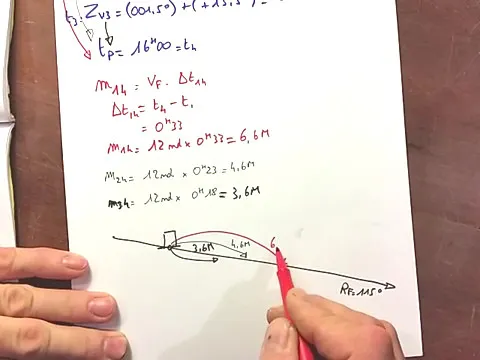 t₃: Zv3 = (001,5°) + (+13,5°) =
tp = 16ᴴ00 = t₄
m₁₄ = VF . Δt₁₄
Δt₁₄ = t₄ - t₁
= 0ᴴ33
m₁₄ = 12 nd × 0ᴴ33 = 6,6M
m₂₄ = 12 nd × 0ᴴ23 = 4,6M
m₃₄ = 12 nd × 0ᴴ18 = 3,6M
3,6M 4,6M 6
RF = 115°